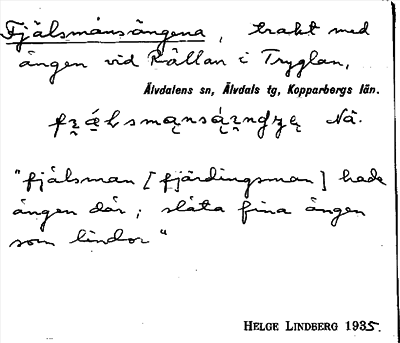 Fjälsmansängena, trakt med
ängen vid Rällan i Tryglan,
Älvdalens sn, Älvdals tg, Kopparbergs län.
Nä.
"fjälsman [fjärdingsman] hade
ängen där; släta fina ängen
som lindor"
HELGE LINDBERG 1935.